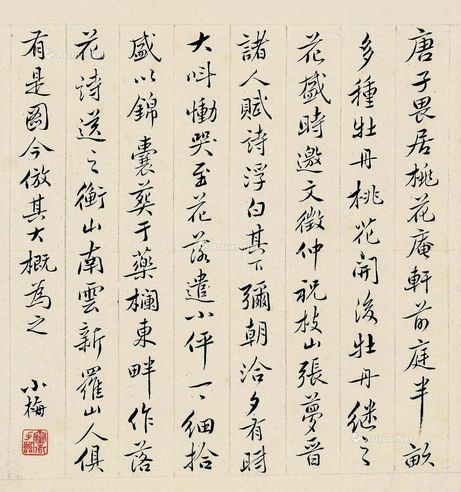 唐子畏居桃花庵軒前庭半畝
多種牡丹桃花開後牡丹继之
花盛時邀文徵仲祝枝山張夢晋
諸人賦詩浮白其下彌朝洽夕有時
大叫慟哭至花落遣小伻一一細拾
盛以錦囊葬于藥欄東畔作落
花詩送之衡山南雲新羅山人俱
有是圖今倣其大概為之
小梅